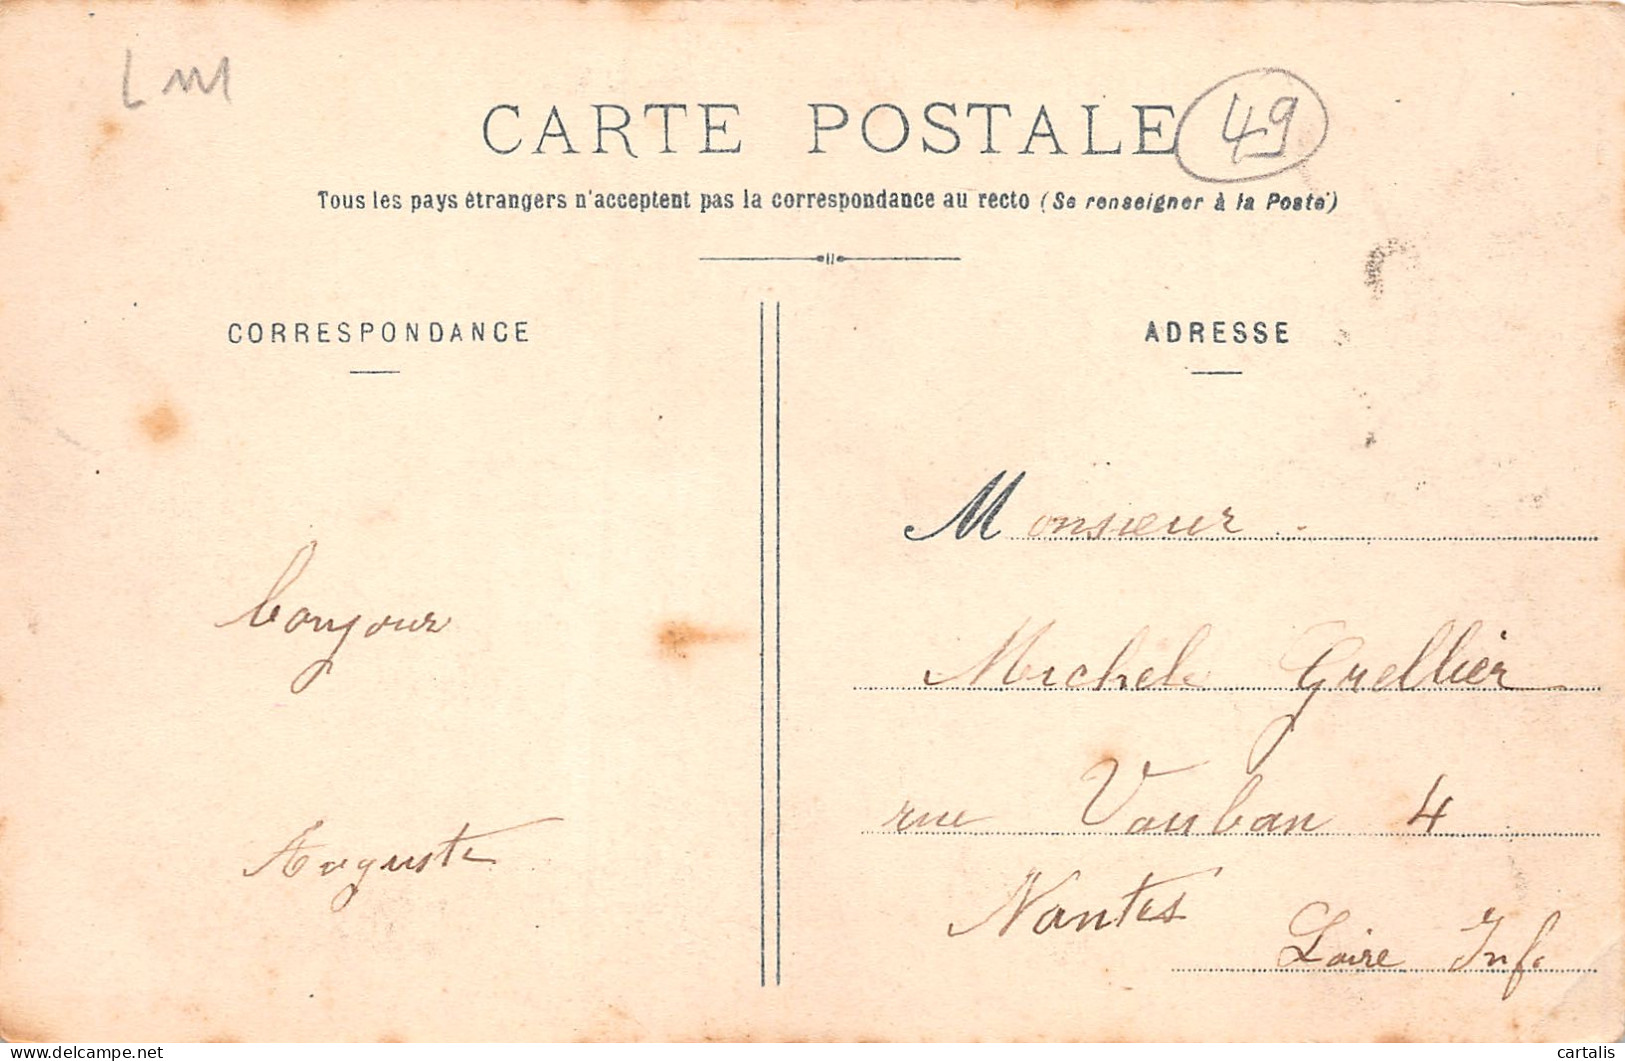 CARTE POSTALE
49
Tous les pays étrangers n'acceptent pas la correspondance au recto (Se renseigner à la Poste)
CORRESPONDANCE
bonjour
Auguste
ADRESSE
Monsieur
Michel Grellier
rue Vauban 4
Nantes
Loire Inf.
delcampe.net
cartalis